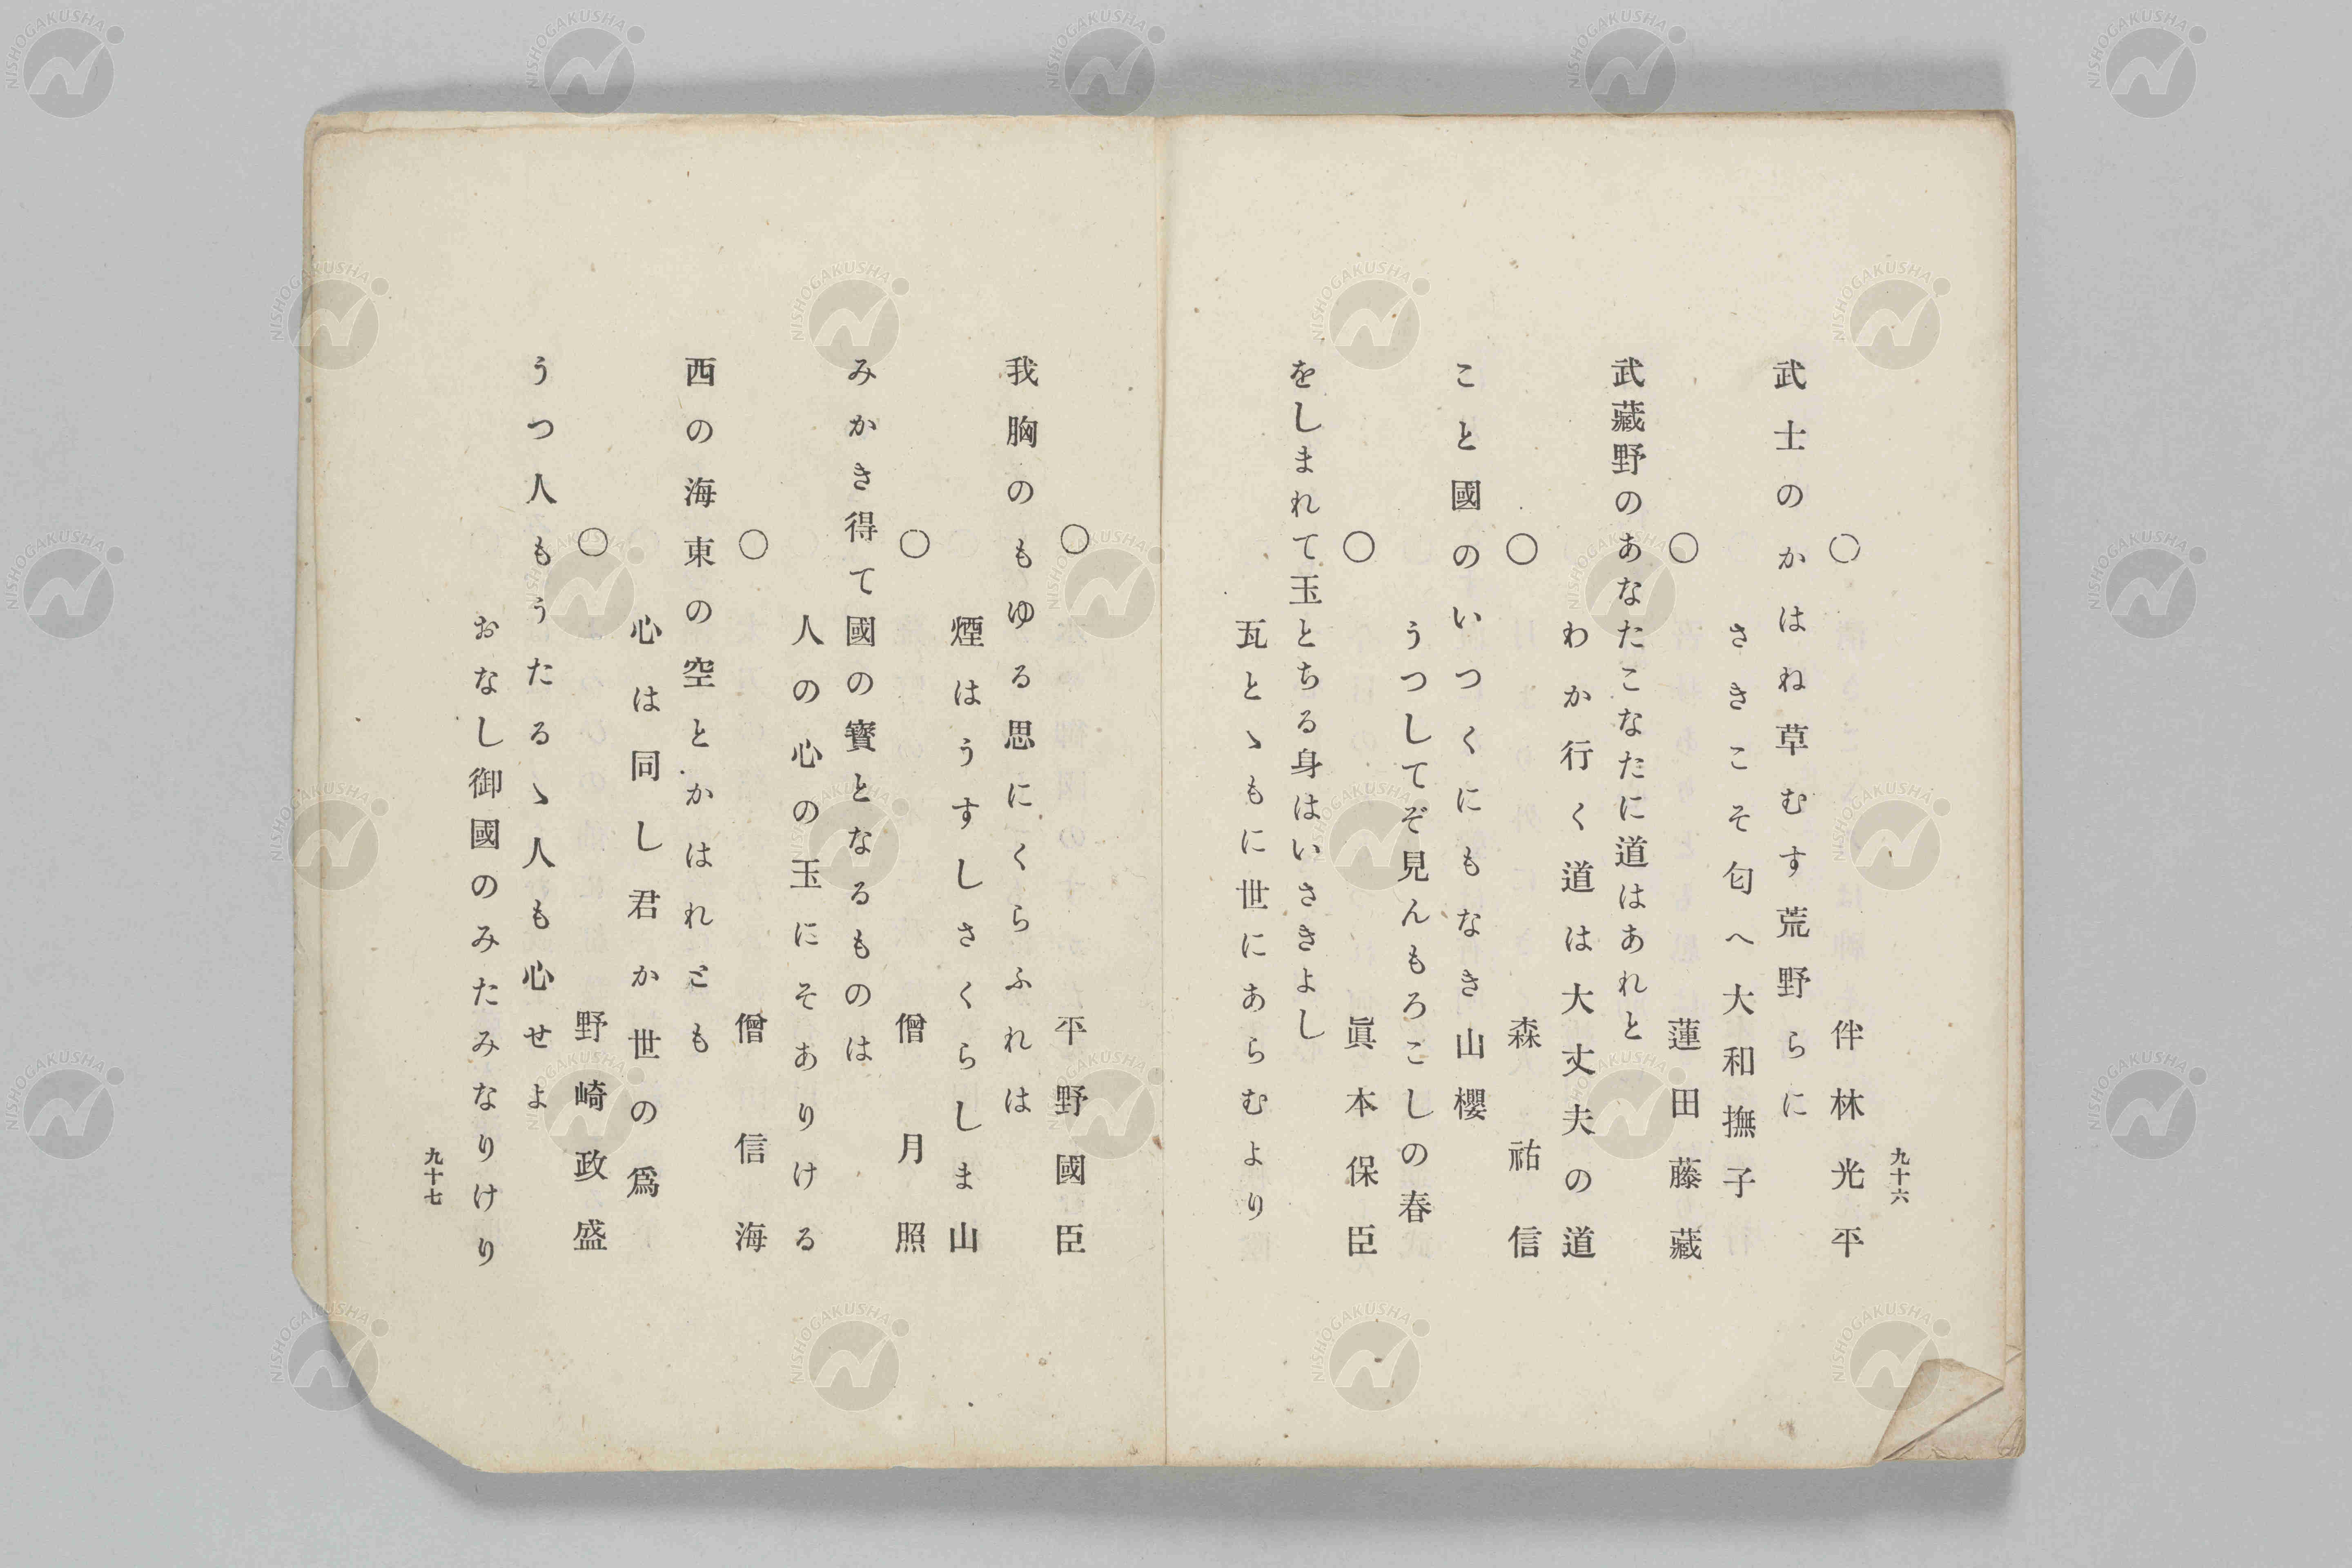 九十六
○　伴林光平
武士のかはね草むす荒野らに
さきこそ匂へ大和撫子
○　蓮田藤藏
武藏野のあなたこなたに道はあれと
わか行く道は大丈夫の道
○　森祐信
こと國のいつくにもなき山櫻
うつしてぞ見んもろこしの春
○　眞木保臣
をしまれて玉とちる身はいさきよし
瓦とゝもに世にあらむより
○　平野國臣
我胸のもゆる思にくらふれは
煙はうすしさくらしま山
○　僧月照
みかき得て國の寳となるものは
人の心の玉にそありける
○　僧信海
西の海東の空とかはれども
心は同し君か世の爲
○　野崎政盛
うつ人もうたるゝ人も心せよ
おなし御國のみたみなりけり
九十七
NISHOGAKUSHA